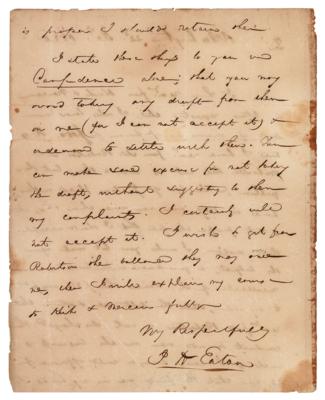 is proper I should retain their
I state these things to you in
Confidence alone; that you may
avoid taking any draft from them
on me (for I can not accept it) &
endeavor to settle with them. You
can make some excuse for not taking
the draft, without suggesting to them
my complaints. I certainly will
not accept it. I wish to get from
Robertson the balance they may owe
me, then I will explain my course
to & fully
Respectfully
Eaton